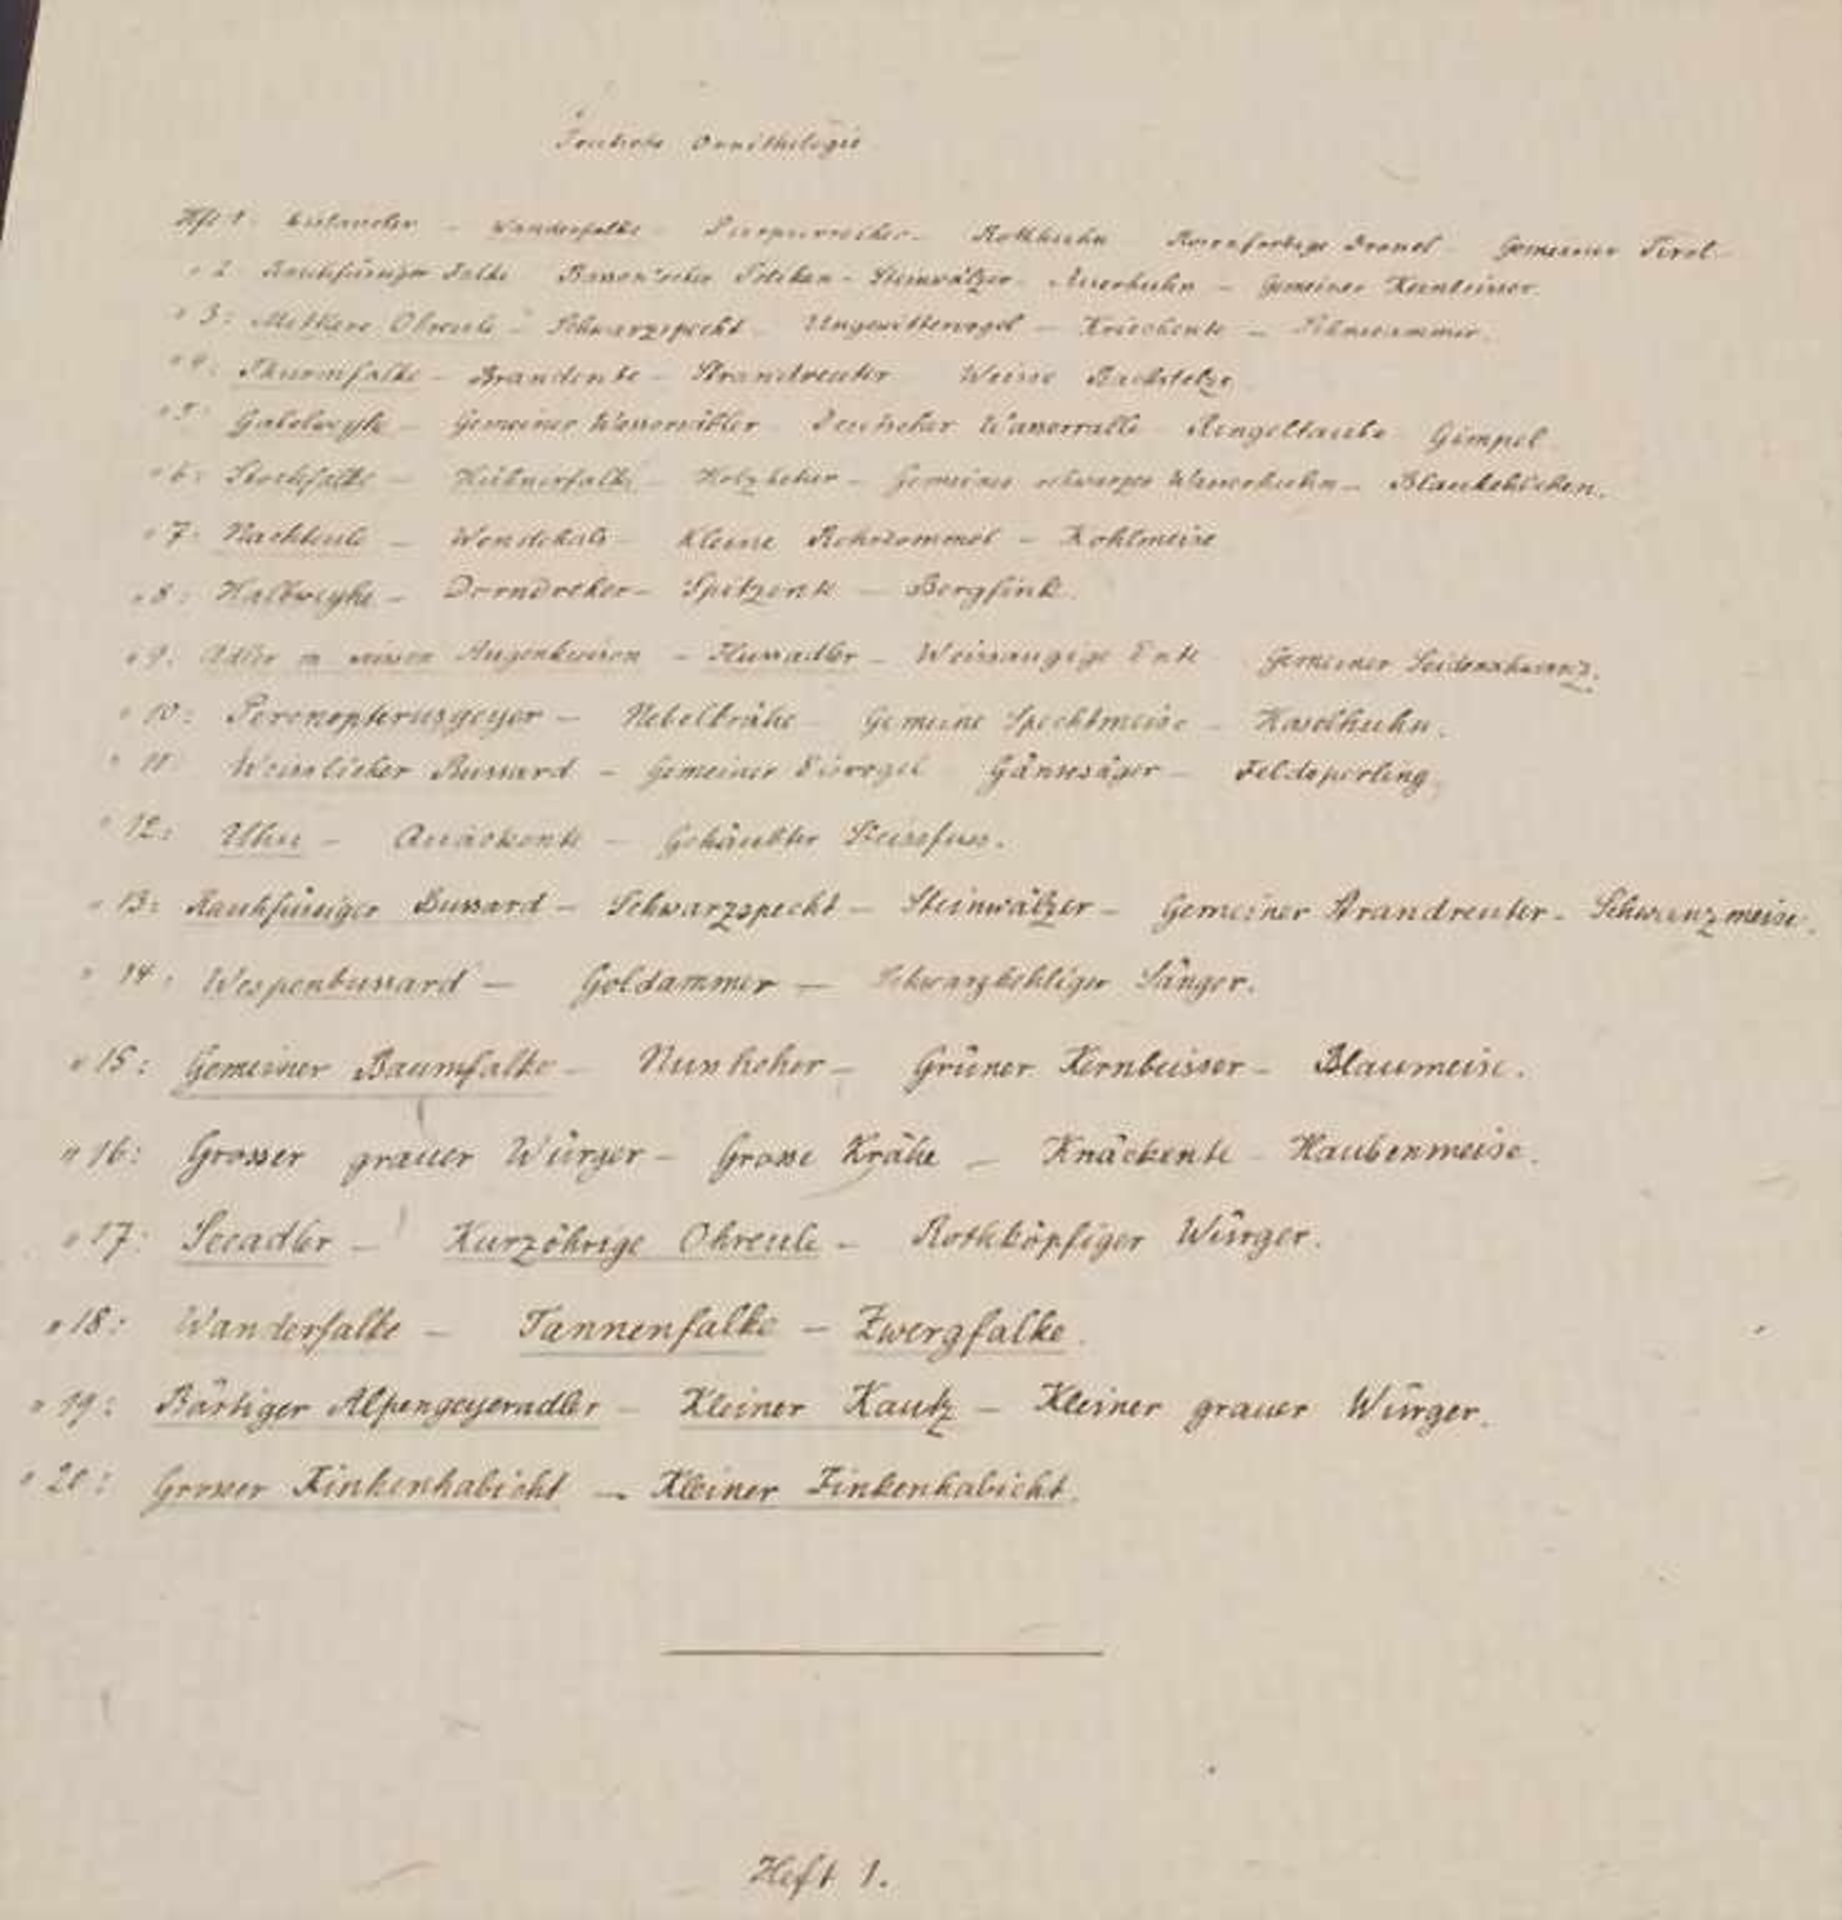 Teutsche Ornithologie
Hft 1: Wanderfalke - Purpurreiher - Rothhuhn - Rosenfarbige Drossel - Gemeiner Pirol -
" 2: Rauchfüssiger Falke - Pelikan - Steinwälzer - Auerhuhn - Gemeiner Kernbeisser.
" 3: Mittlere Ohreule - Schwarzspecht - Ungewittervogel - Kriechente - Schneeammer.
" 4: Thurmfalke - Brandente - Strandreuter - Weisse Bachstelze
" 5: Gabelweyhe - Gemeiner Wassersäbler - Teutscher Wasserralle - Ringeltaube - Gimpel
" 6: Stockfalke - Hühnerfalke - Holzheher - Gemeines schwarzes Wasserhuhn - Blaukehlchen.
" 7: Nachteule - Wendehals - Kleine Rohrdommel - Kohlmeise
" 8: Halbweyhe - Dorndreher - Spitzente - Bergfink.
" 9: Adler m weissen Augenkreisen - Flussadler - Weissaugige Ente - Gemeiner Seidenschwanz.
" 10: Percnopterusgeyer - Nebelkrähe - Gemeine Spechtmeise - Haselhuhn.
" 11: Weisslicher Bussard - Gemeiner Eisvogel - Gänsesäger - Feldsperling.
" 12: Uhu - - Gehäubter Steissfuss.
" 13: Rauhfüssiger Bussard - Schwarzspecht - Steinwälzer - Gemeiner Strandreuter - Schwanzmeise.
" 14: Wespenbussard - Goldammer - Schwarzkehliger Sänger.
" 15: Gemeiner Baumfalke - Nussheher - Grüner Kernbeisser - Blaumeise.
" 16: Grosser grauer Würger - Grosse Krähe - Knäckente - Haubenmeise.
" 17: Seeadler - Kurzöhrige Ohreule - Rothköpfiger Würger.
" 18: Wanderfalke - Tannenfalke - Zwergfalke.
" 19: Bärtiger Alpengeyeradler - Kleiner Kautz - Kleiner grauer Würger.
" 20: Grosser Finkenhabicht - Kleiner Finkenhabicht.
Heft 1.